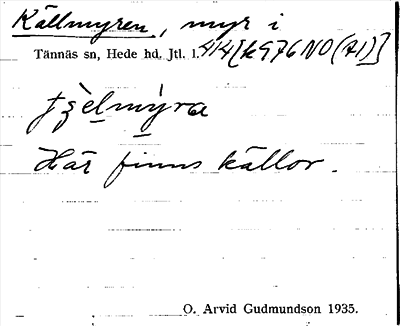 Källmyren, myr i
Tännäs sn, Hede hd. Jtl. l. 4/4 [k976NO(A1)]
tȿelmýra
Här finns källor.
O. Arvid Gudmundson 1935.